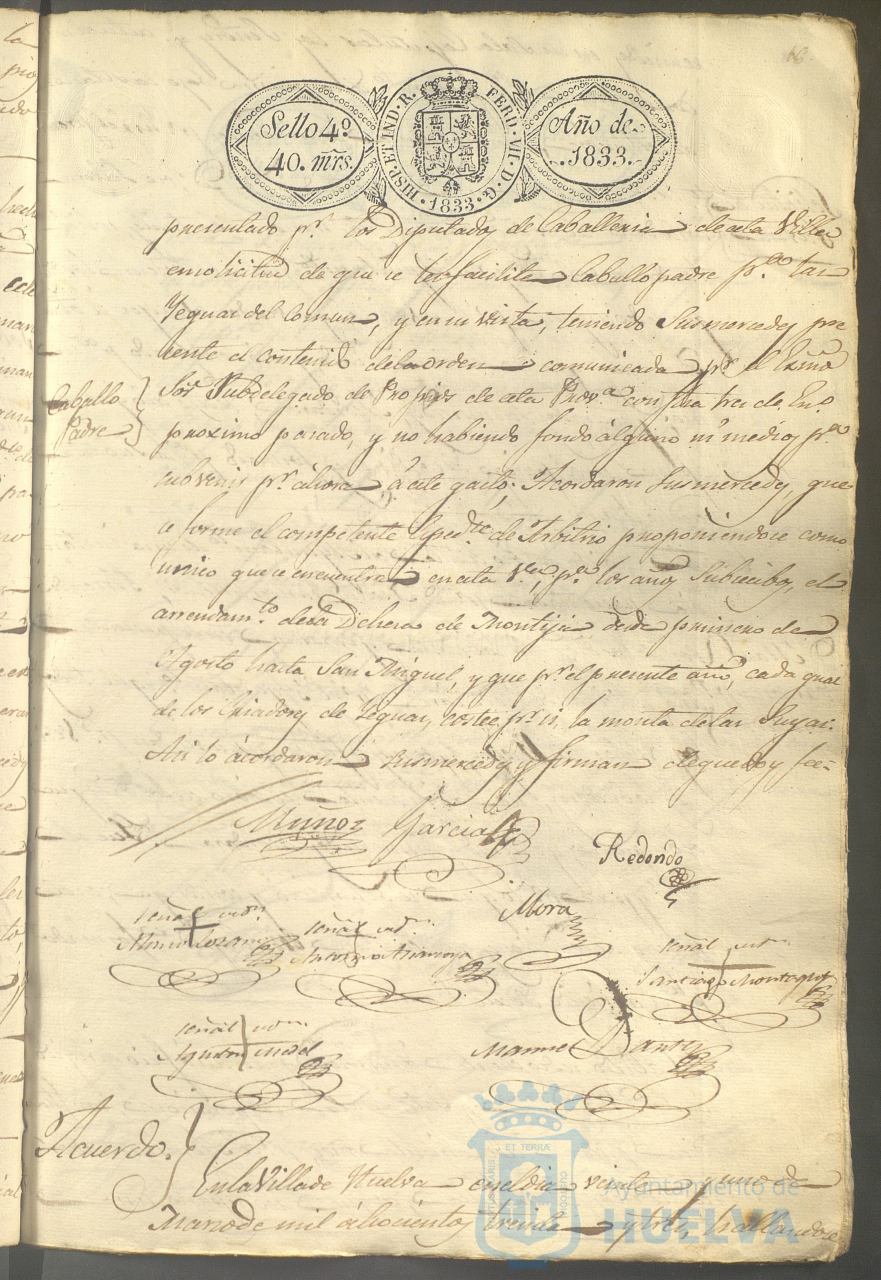 16
Sello 4º
40. mrs.
HISP. ET IND. R. FERD. VII. D. G.
1833
Año de
1833.
presentado pr. los Diputados de Caballeria de esta Villa
en solicitud de que se les facilite Caballo padre pa. las
Yeguas del Comun, y en su vista, teniendo Susmercedes pre
sente el contenido de la orden comunicada pr. el Exmo
Caballo
Padre
Sor. Subdelegado de Propios de esta Prova. con fha tres de Eno.
proximo pasado, y no habiendo fondo alguno ni medios pa.
subvenir pr. ahora á este gasto; Acordaron Susmercedes, que
se forme el competente Espedte. de Arbitrio proponiendose como
unico que se encuentra en esta Va., pa. los años Subcibos, el
arrendamto. de la Dehesa de Montija desde primero de
Agosto hasta San Miguel, y que pr. el presente año, cada qual
de los Criadores de Yeguas, costee pr. si, la monta de las Suyas.
Asi lo ácordaron Susmercedes y firman de que doy fee=
Muñoz Garcia
Redondo
Mora
señal
señal
Antonio
señal
Santiago
señal
Agustin
Manuel
Acuerdo.
En la Villa de Huelva en el dia veinte y uno de
Marzo de mil ochocientos treinta y tres, hallandose
ET TERRAE
Ayuntamiento de
HUELVA